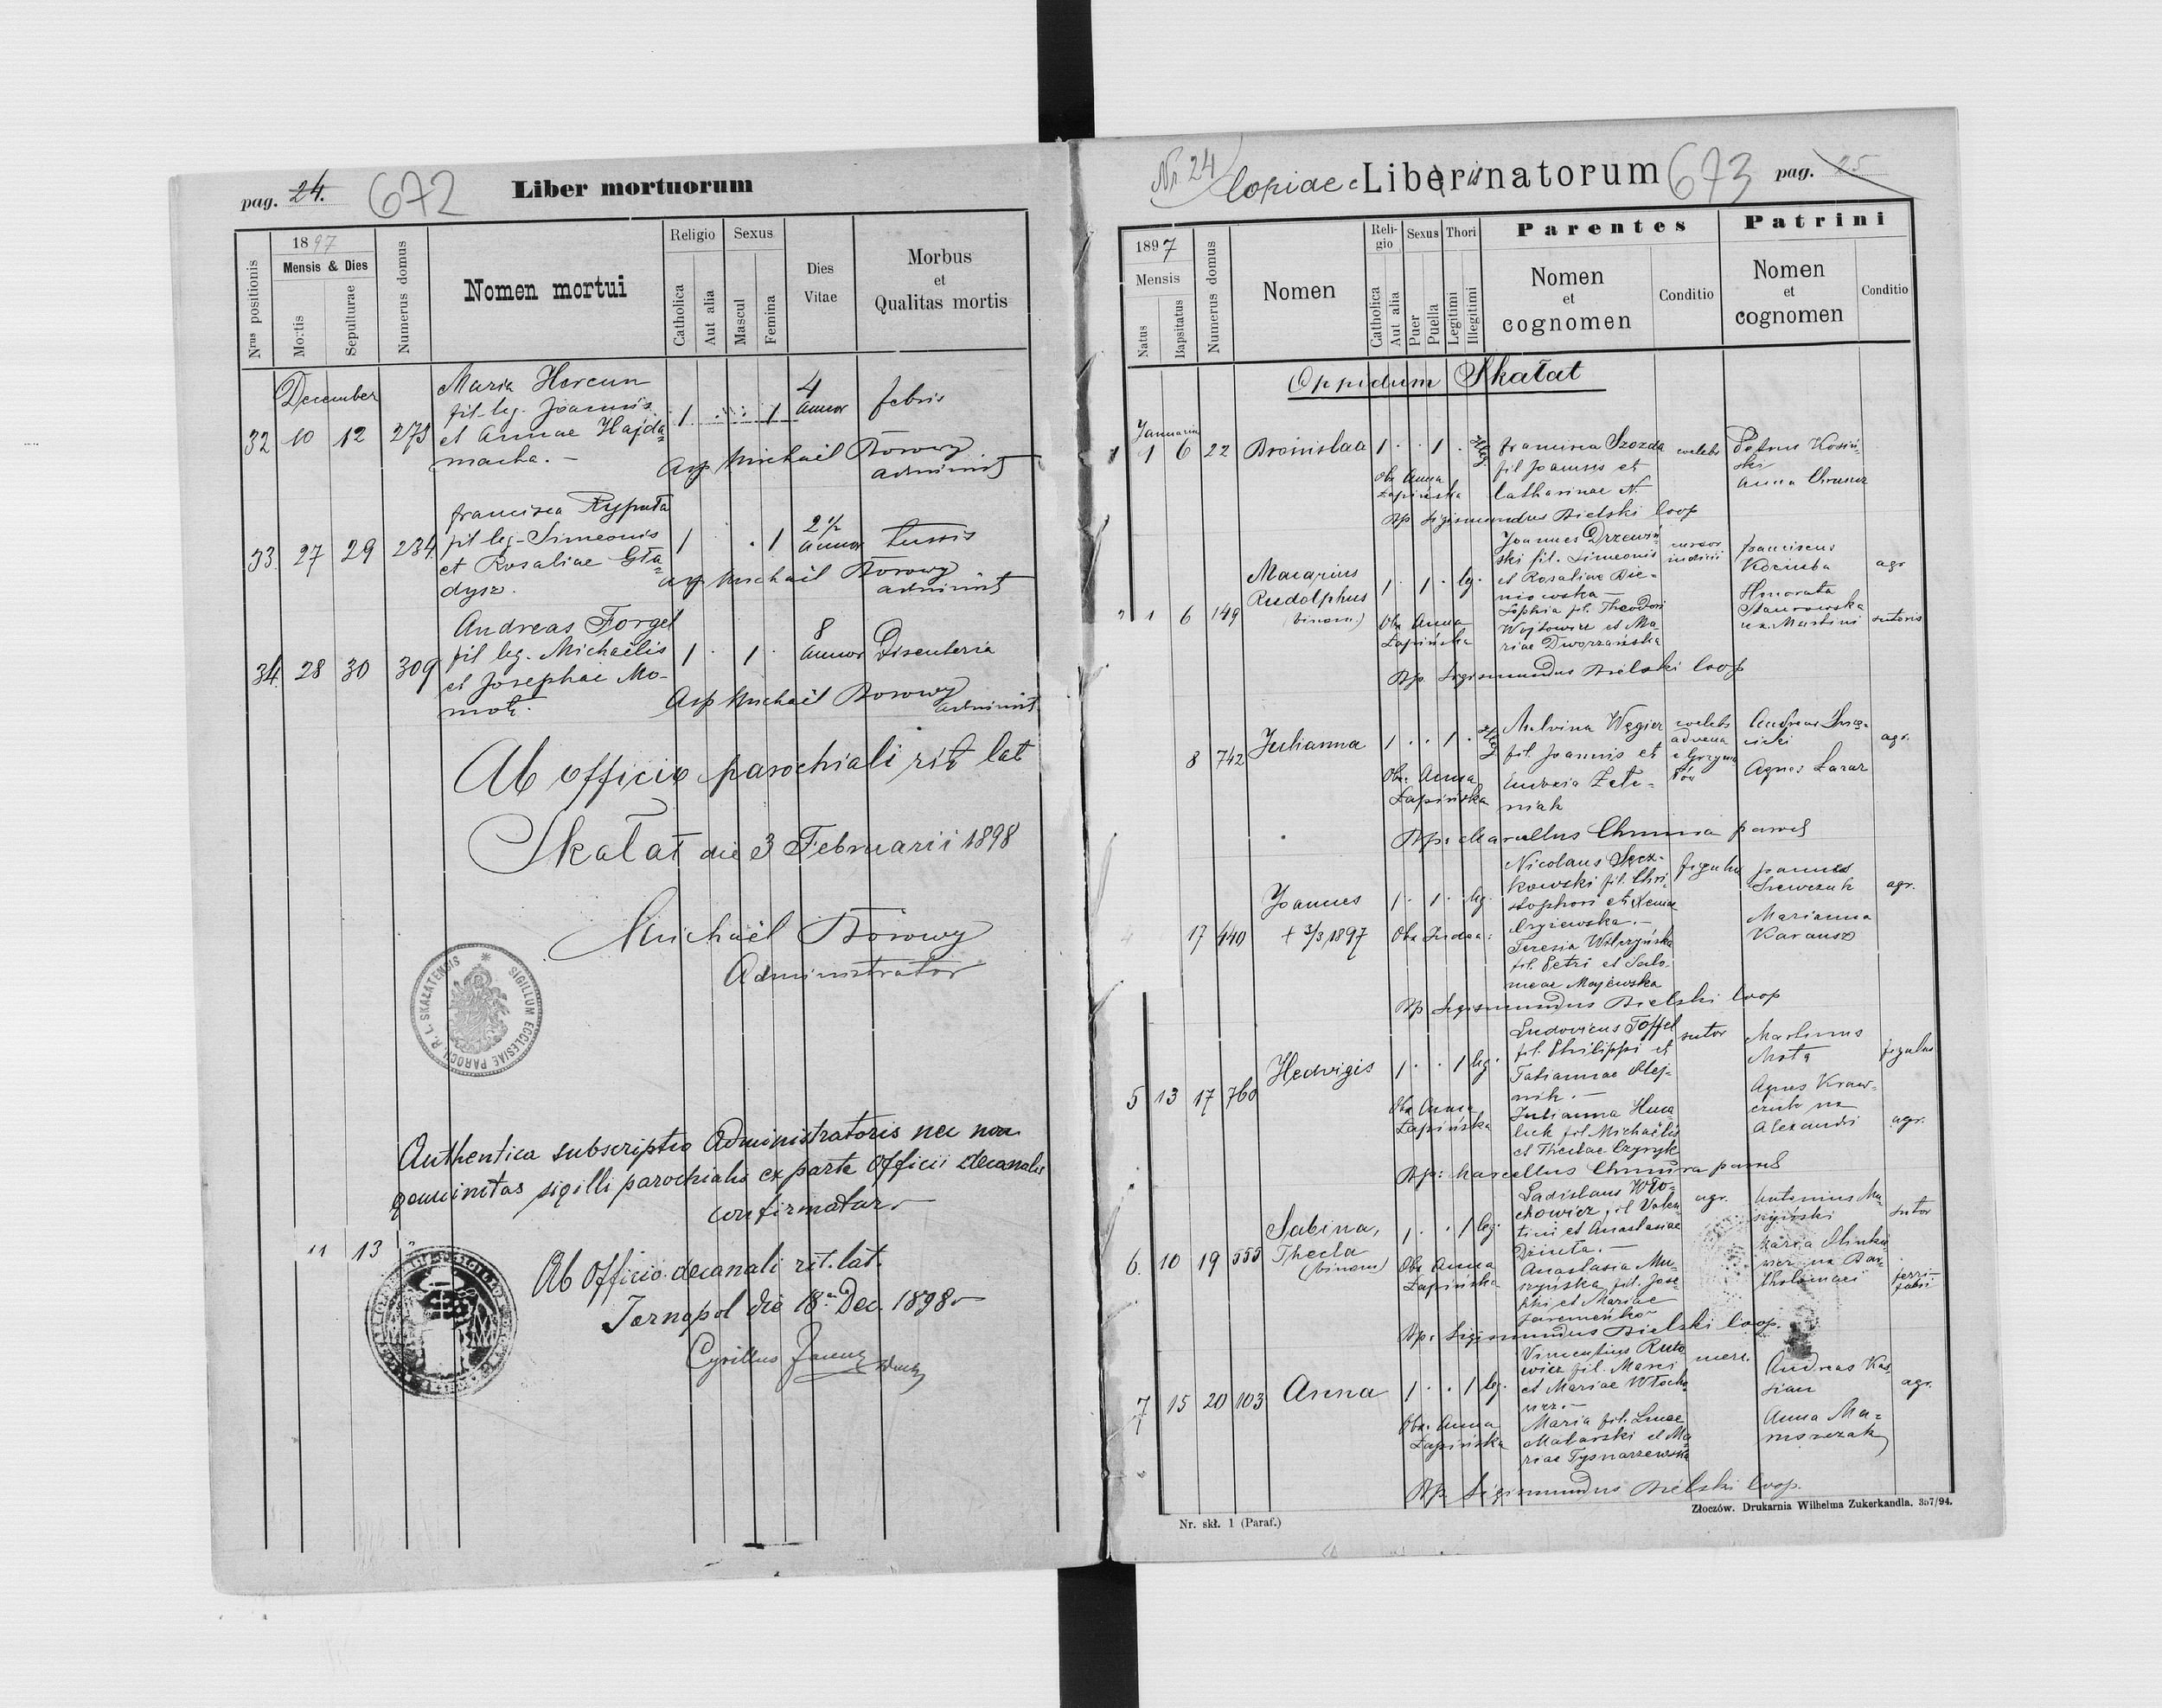 pag. 24. 672 Liber mortuorum
Nrus positionis
1897
Mensis & Dies
Mortis
Sepulturae
Numerus domus
Nomen mortui
Religio
Catholica
Aut alia
Sexus
Mascul
Femina
Dies
Vitae
Morbus
et
Qualitas mortis
December
Maria Horcun
fil. leg. Joannis
32 10 12 273 et Annae Hajda= 1 1 4 annor febris
macha. -
Asp Michaël Borowy
administ
francisca Ryputa
33 27 29 234 fil leg. Simeonis 1 1 2 1/2 annor tussis
et Rosaliae Gła=
dysz.
Asp Michaël Borowy
administ
Andreas Forgel
34. 28 30 309 fil leg. Michaëlis 1 1 8 annor Disenteria
et Josephae Mo-
Asp Michaël Borowy
administ
Ab officio parochiali rit lat
Skałat die 3 Februarii 1898
Michaël Borowy
Administrator
SIGILLUM ECCLESIAE PAROCH. R. L. SKAŁATENSIS
Authentica subscriptio Administratoris nec non
genuinitas sigilli parochialis ex parte Officii decanalis
confirmatur
11 13
Ab Officio decanali rit. lat.
Tarnopol die 18a Dec. 1898
Cyrillus
Nr. 24 Copiae Libri natorum 673 pag. 25
1897
Mensis
Natus
Bapsitatus
Numerus domus
Nomen
Reli-
gio
Catholica
Aut alia
Sexus
Puer
Puella
Thori
Legitimi
Illegitimi
Parentes
Nomen
et
cognomen
Conditio
Patrini
Nomen
et
cognomen
Conditio
Oppidum Skałat
Januarius
1 1 6 22 Bronislaa 1 1 illeg francisca Szozda caelebs Petrus Kosiń-
fil Joannis et ski
Catharinae N. Anna
Obs Anna
Łapińska
Bp Sigismundus Bielski Coop
Joannes Drzewiń
ski fil. Simeonis cursor franciscus
et Rosaliae Bie- Kociuba agr
niowska
2 1 6 149 Macarius
Rudolphus 1 1 lg.
(binom.)
Sophia fil. Theodori Honorata
Wojtowicz et Ma- Staurowska
riae Dworzańska ux. Martini sutoris
Obs Anna
Łapińska
Bp. Sigismundus Bielski Coop
8 742 Julianna 1 1 illeg Malvina Węgier caelebs Andreas
fil. Joannis et advena agr.
e Grzyma-
łów Agnes Łazar
niak
Obs. Anna
Łapińska
Bp: Marcellus Chmura
Nicolaus Sęcz-
kowski fil. Chri- figulus Joannes
stophori et Szewczuk agr.
17 440 Joannes 1 1 leg.
+ 3/3 1897
Teresia Marianna
fil. Petri et Salo- Karausz
meae Majewska
Bp Sigismundus Bielski Coop
Ludovicus Toffel sutor Martinus
fil. Philippi et Mota figulus
Tatiannae Olej-
nik.
5 13 17 760 Hedvigis 1 1 leg
Obs Anna
Łapińska
Julianna Agnes Kraw-
fil Michaëlis czuk ux
et Theclae Czyryk Alexandri agr.
Bp: Marcellus Chmura
Ladislaus Wło-
chowicz fil Valen- agr. Antonius Mu-
tini et Anastasiae szyński sutor
Dziuta.
6. 10 19 555 Sabina,
Thecla 1 1 leg
(binom)
Obs Anna
Łapińska
Anastasia Mu- Maria
szyńska fil. Jose- ux Bar-
phi et Mariae tholomaei ferri-
Jaremenko fabri
Bp. Sigismundus Bielski Coop.
Vincentius Ruto
wicz fil. Marci merc. Andreas Kas-
et Mariae Włocho- sian agr.
wicz.
7 15 20 103 Anna 1 1 leg.
Obs. Anna
Łapińska
Maria fil. Lucae Anna Ma-
Matarski et Ma-
riae Tysnarzewska
Bp. Sigismundus Bielski Coop.
Nr. skł. 1 (Paraf.)
Złoczów. Drukarnia Wilhelma Zukerkandla. 357/94.